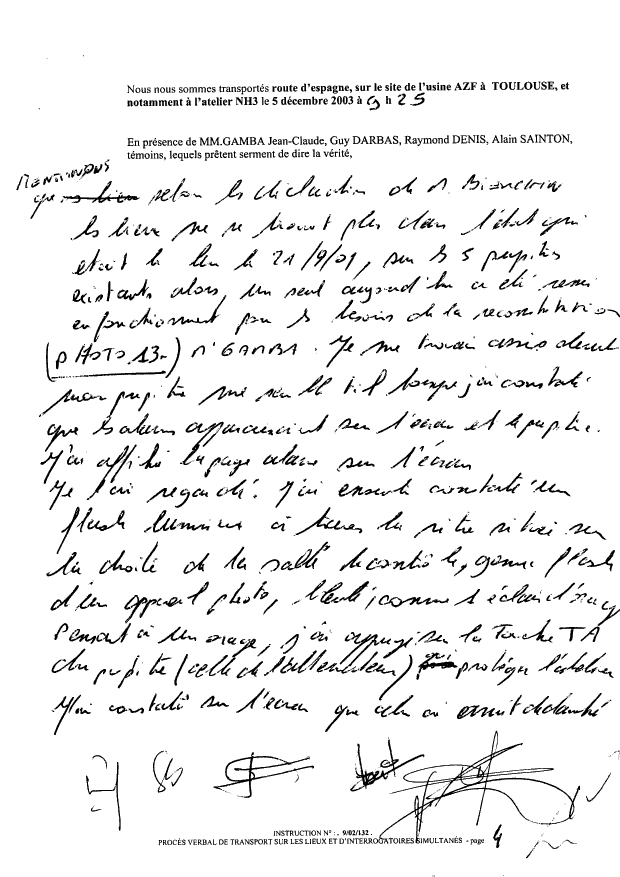 Nous nous sommes transportés route d'espagne, sur le site de l'usine AZF à TOULOUSE, et
notamment à l'atelier NH3 le 5 décembre 2003 à 9 h 25
En présence de MM.GAMBA Jean-Claude, Guy DARBAS, Raymond DENIS, Alain SAINTON,
témoins, lequels prêtent serment de dire la vérité,
MENTIONNONS
que selon les déclaration de M.
les lieux ne se trouvent plus dans l'état qui
etait le leur le 21/9/01, sur les 5 pupitres
existants alors, un seul aujourd'hui a été remis
en fonctionnement pour les besoins de la reconstitution
(PHOTO 13-) Mr GAMBA. Je me trouvais assis devant
mon pupitre me semble t il lorsque j'ai constaté
que les alarmes apparaissaient sur l'écran et le pupitre.
J'ai affiché la page alarme sur l'écran
Je l'ai regardé. J'ai ensuite constaté un
flash lumineux à travers la vitre située sur
la droite de la salle de contrôle, genre flash
d'un appareil photo, comme 1 éclair d'orage
Pensant à un orage, j'ai appuyé sur la Touche TA
du pupitre (celle de l'alternateur) qui protège l'atelier
J'ai constaté sur l'écran que cela avait déclanché
INSTRUCTION N° : . 9/02/132 .
PROCÈS VERBAL DE TRANSPORT SUR LES LIEUX ET D'INTERROGATOIRES SIMULTANÉS - page 4